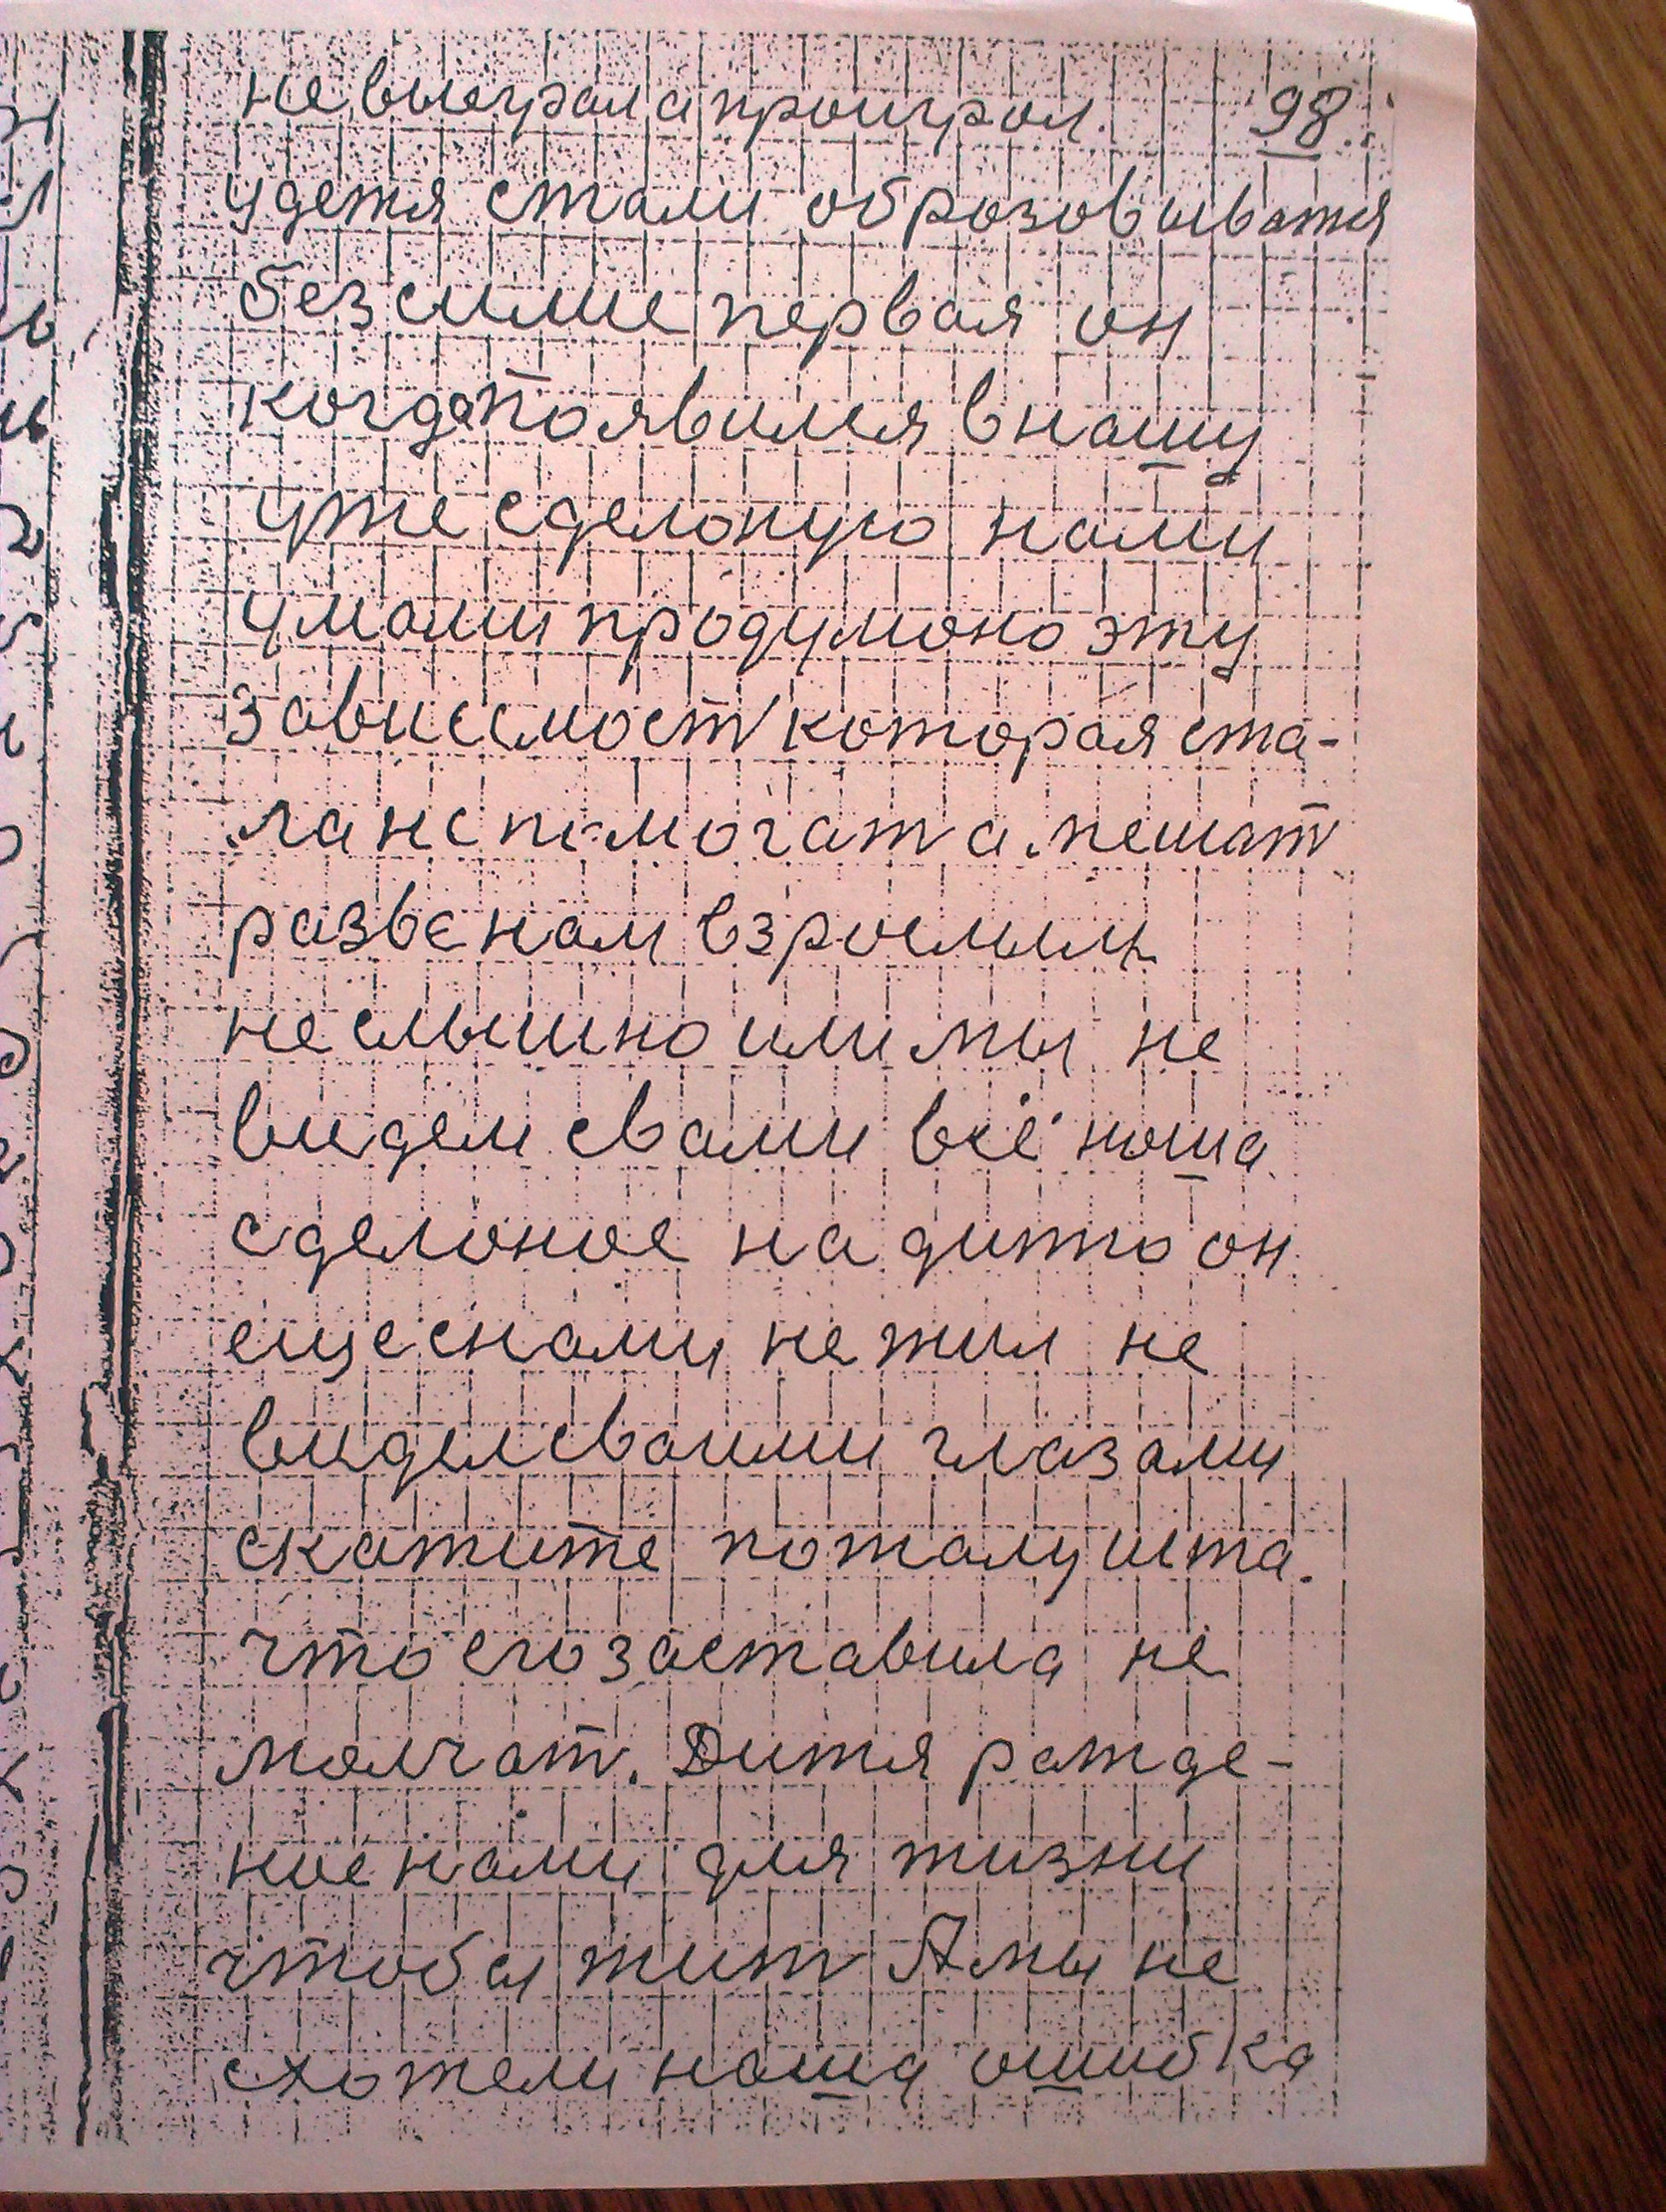 не выеграл а проиграл. 98.
у детя стали образовыватя
без силие первая он
когда появился в нашу
уже сделоную нами
умоши продумоно эту
зависсмост которая ста-
ла не помогат а мешат
разве нам взрослым
не слышно или мы не
видем свами всё наша
сделоное на дитю он
еще снами не жил не
видел сваими глазами
скажите пожалушта.
что его заставила не
молчат. Дитя ражде-
ное нами для жизни
чтобы жит А мы не
схотели наша ошибка